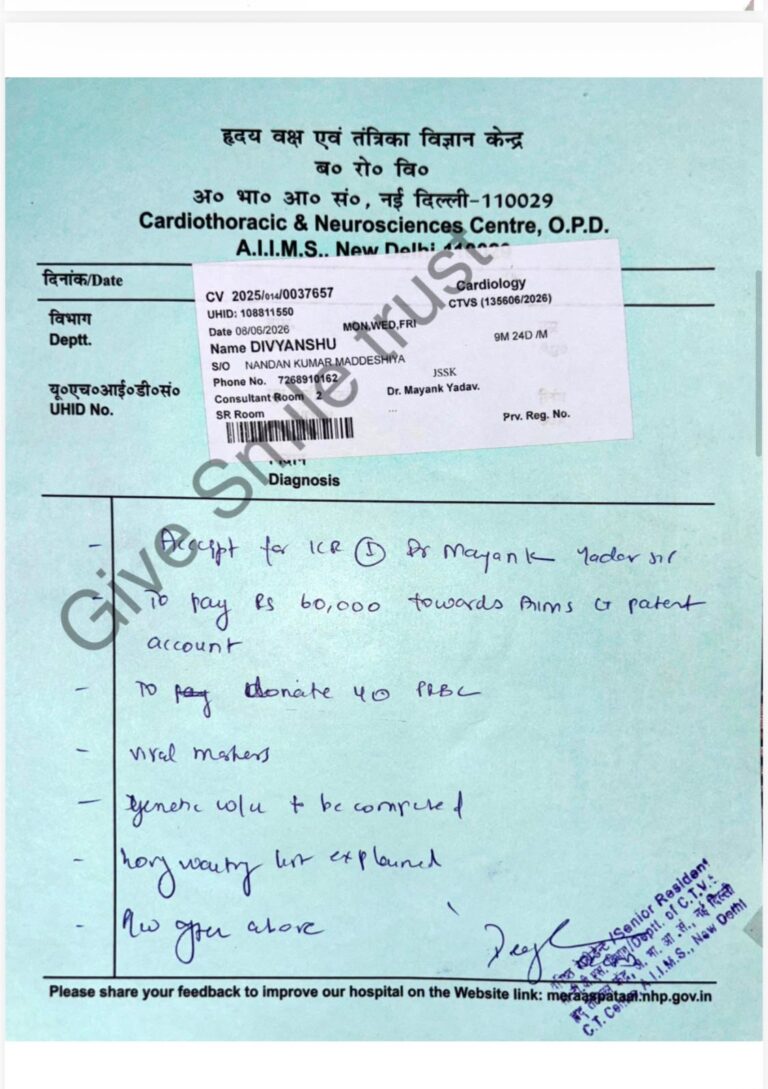 हृदय वक्ष एवं तंत्रिका विज्ञान केन्द्र
ब० रो० वि०
अ० भा० आ० सं०, नई दिल्ली-110029
Cardiothoracic & Neurosciences Centre, O.P.D.
A.I.I.M.S., New Delhi-110029
दिनांक/Date
विभाग
Deptt.
यू०एच०आई०डी०सं०
UHID No.
CV 2025/014/0037657
Cardiology
UHID: 108811550
CTVS (135606/2026)
Date 08/06/2026
MON,WED,FRI
Name DIVYANSHU
9M 24D /M
S/O NANDAN KUMAR MADDESHIYA
Phone No. 7268910162
JSSK
Consultant Room 2
Dr. Mayank Yadav.
SR Room
...
Prv. Reg. No.
निदान
Diagnosis
Give Smile trust
- Accept for ICR Dr Mayank Yadav sir
- To pay Rs 60,000 towards AIIMS patent
account
- To pay donate PRBC
- viral markers
- genetic w/u to be completed
- long waiting list explained
- above
Senior Resident
Deptt. of C.T.V.S.
A.I.I.M.S., New Delhi
Please share your feedback to improve our hospital on the Website link: meraaspataal.nhp.gov.in